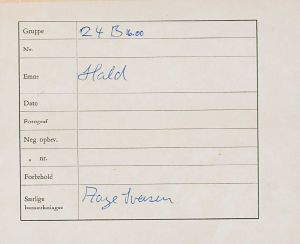 Gruppe 24 B 16.00
Nr.
Emne Hald
Dato
Fotograf
Neg. opbev.
„ nr.
Forbehold
Særlige
bemærkninger Aage Iversen